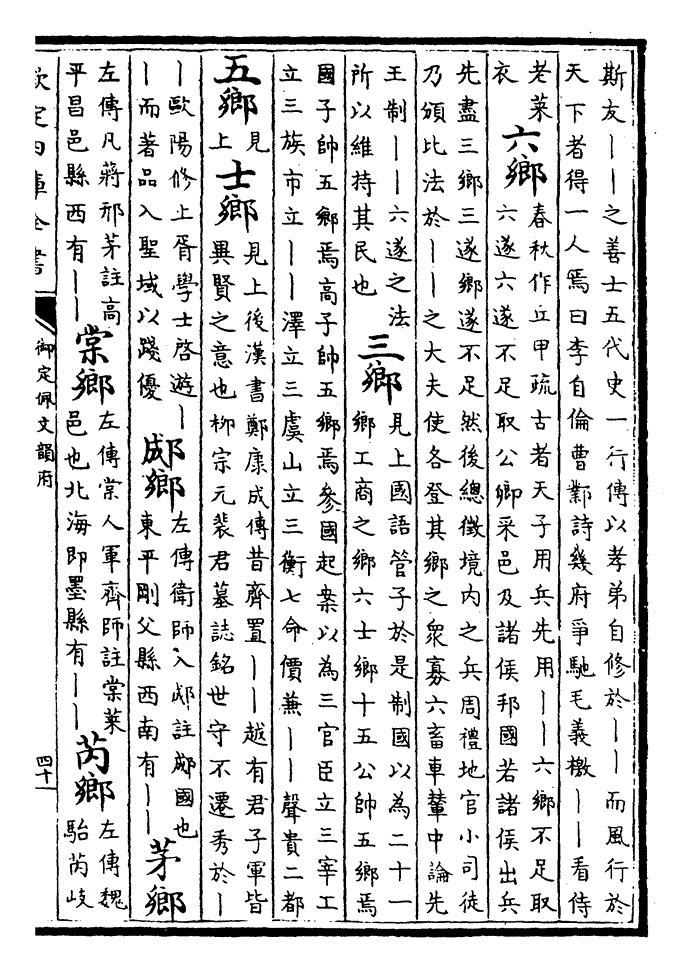 斯友――之善士五代史一行傳以孝弟自修於――而風行於
天下者得一人焉曰李自倫曹鄴詩幾府爭馳毛義檄――看侍
老萊
衣
六鄉
春秋作丘甲疏古者天子用兵先用――六鄉不足取
六遂六遂不足取公卿采邑及諸侯邦國若諸侯出兵
先盡三鄉三遂鄉遂不足然後總徵境内之兵周禮地官小司徒
乃頒比法於――之大夫使各登其鄉之衆寡六畜車輦中論先
王制――六遂之法
所以維持其民也
三鄉
見上國語管子於是制國以為二十一
鄉工商之鄉六士鄉十五公帥五鄉焉
國子帥五鄉焉高子帥五鄉焉參國起案以為三官臣立三宰工
立三族市立――澤立三虞山立三衡七命價兼――聲貴二都
五鄉
見
上
士鄉
見上後漢書鄭康成傳昔齊置――越有君子軍皆
異賢之意也柳宗元裴君墓誌銘世守不遷秀於―
―歐陽修上胥學士啓遊―
―而著品入聖域以踐優
郕鄉
左傳衛師入郕註郕國也
東平剛父縣西南有――
茅鄉
左傳凡蔣邢茅註高
平昌邑縣西有――
棠鄉
左傳棠人軍齊師註棠萊
邑也北海即墨縣有――
芮鄉
左傳魏
駘芮岐
欽定四庫全書
御定佩文韻府
四十